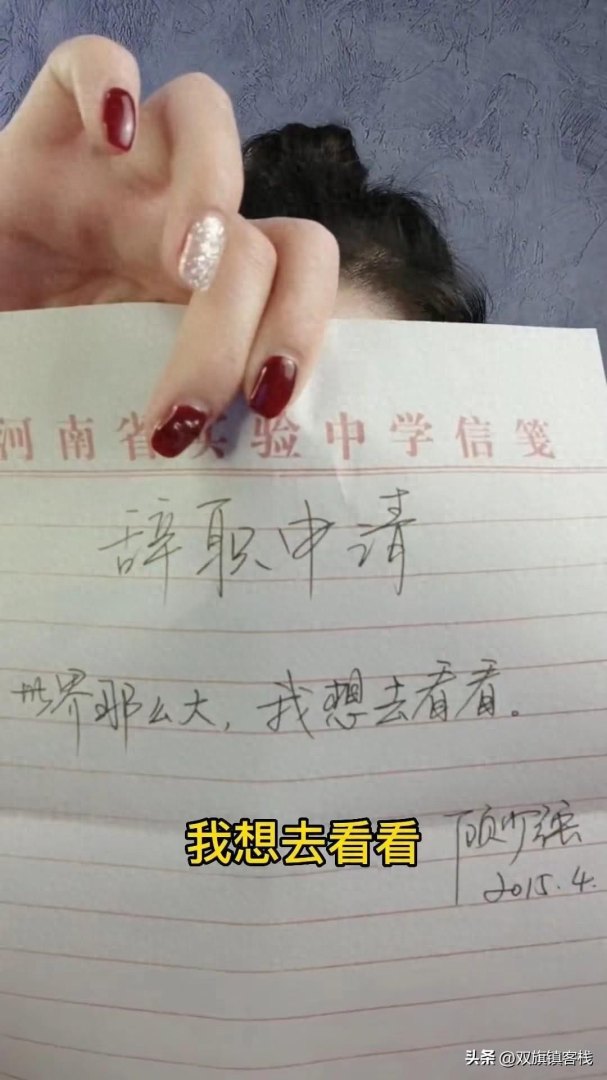 河南省实验中学信笺
辞职申请
世界那么大，我想去看看。
顾少强
2015.4.
我想去看看
头条 @双旗镇客栈